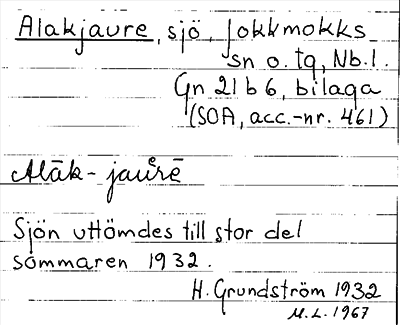 Alakjaure, sjö, Jokkmokks
sn o. tg, Nb.l.
Gn 21 b 6, bilaga
(SOA, acc.-nr. 461)
Alāk-jaurē
Sjön uttömdes till stor del
sommaren 1932.
H. Grundström 1932
M.L. 1967